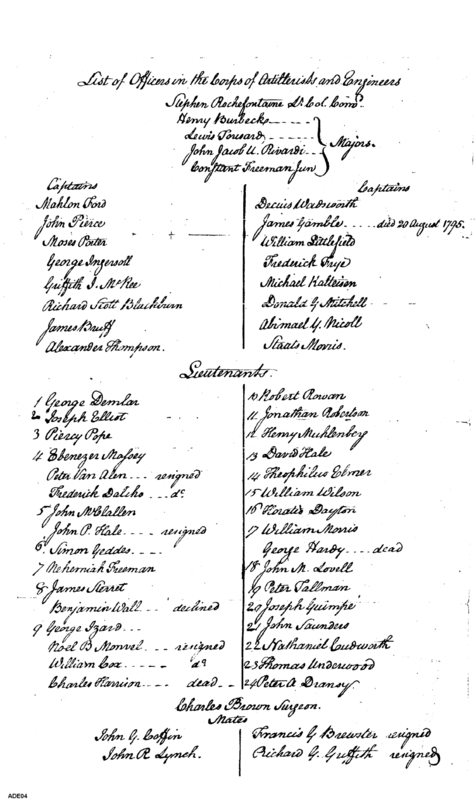 List of Officers in the Corps of Artillerists and Engineers
Stephen Rochefontaine Lt. Col. Comd.
Henry Burbeck
Lewis Tousard
John Jacob U. Rivardi
Constant Freeman Jun
Majors.
Captains
Mahlon Ford
John Pierce
Moses Porter
George Ingersoll
Griffith J. McRee
Richard Scott Blackburn
James Bruff
Alexander Thompson.
Captains
Decius Wadsworth
James Gamble ---- died 20 August 1795.
William Littlefield
Frederick Frye
Michael Kalteisen
Donald G Mitchell
Abimael Y. Nicoll
Staats Morris.
Lieutenants
1 George Demlar
2 Joseph Elliot
3 Piercy Pope
4 Ebenezer Massey
Peter Van Alen --- resigned
Frederick Dalcho --- do.
5 John McClallen
John P. Hale ---- resigned
6 Simon Geddes ----
7 Nehemiah Freeman
8 James Sterret
Benjamin Wall --- declined
9 George Izard ---
Noel B Monvel --- resigned
William Cox --- do.
Charles Harrison --- dead
10 Robert Rowan
11 Jonathan Robertson
12 Henry Muhlenberg
13 David Hale
14 Theophilus Elmer
15 William Wilson
16 Horatio Dayton
17 William Morris
George Hardy --- dead
18 John M. Lovell
19 Peter Tallman
20 Joseph Guimpe
21 John Saunders
22 Nathaniel Cudworth
23 Thomas Underwood
24 Peter A Dransy
Charles Brown Surgeon.
Mates
John G. Coffin
John R Lynch.
Francis G Brewster resigned
Richard G. Griffith resigned
ADE04